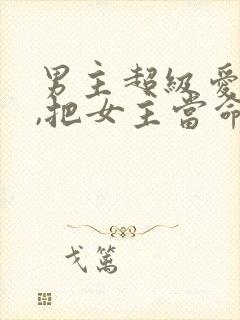 男主超級愛
,把女主當命
戈篱